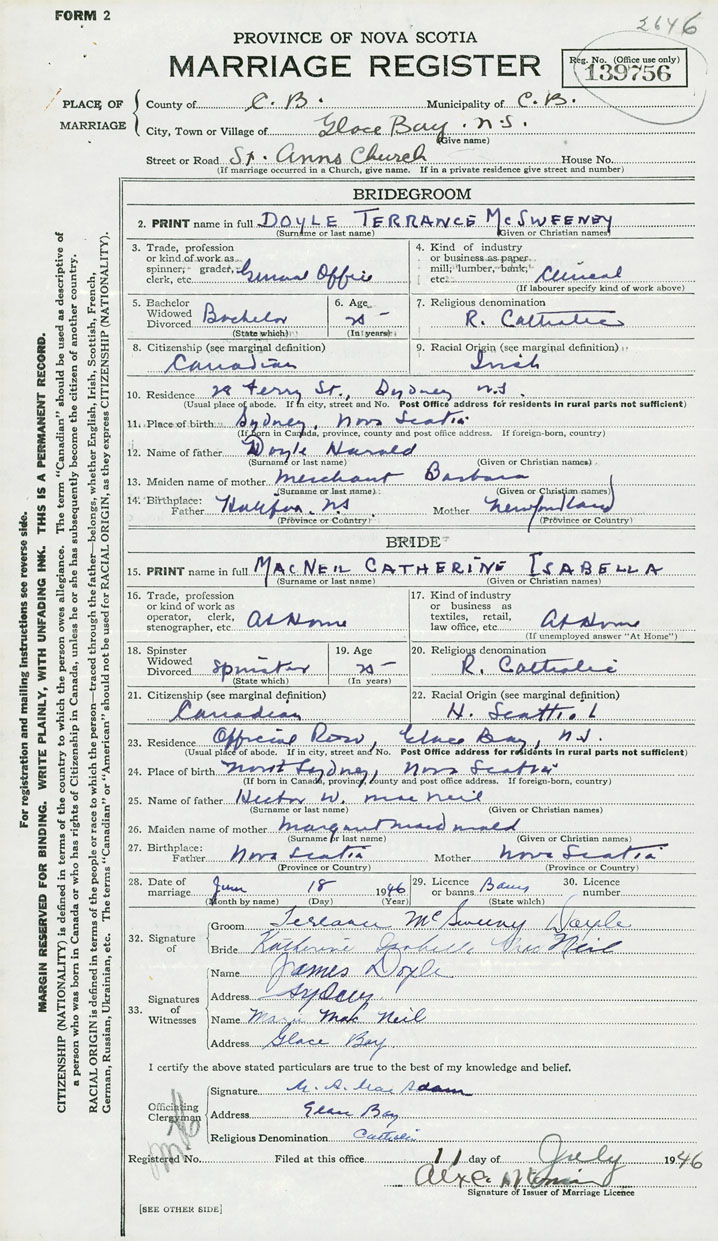 FORM 2
2646
PROVINCE OF NOVA SCOTIA
MARRIAGE REGISTER
Reg. No. (Office use only)
139756
PLACE OF MARRIAGE
County of C. B. Municipality of C. B.
City, Town or Village of Glace Bay. N.S.
(Give name)
Street or Road St. Anns Church House No.
(If marriage occurred in a Church, give name. If in a private residence give street and number)
BRIDEGROOM
2. PRINT name in full DOYLE TERRANCE McSWEENEY
(Surname or last name) (Given or Christian names)
3. Trade, profession or kind of work as spinner, grader, clerk, etc. General Office
4. Kind of industry or business as paper mill, lumber, bank, etc. Clerical
(If labourer specify kind of work above)
5. Bachelor Widowed Divorced Bachelor
(State which)
6. Age 25
(In years)
7. Religious denomination
R. Catholic
8. Citizenship (see marginal definition)
Canadian
9. Racial Origin (see marginal definition)
Irish
10. Residence St., Sydney N.S.
(Usual place of abode. If in city, street and No. Post Office address for residents in rural parts not sufficient)
11. Place of birth Sydney, Nova Scotia
(If born in Canada, province, county and post office address. If foreign-born, country)
12. Name of father Doyle Harold
(Surname or last name) (Given or Christian names)
13. Maiden name of mother Merchant Barbara
(Surname or last name) (Given or Christian names)
14. Birthplace: Father Halifax, N.S Mother Newfoundland
(Province or Country) (Province or Country)
BRIDE
15. PRINT name in full MACNEIL CATHERINE ISABELLA
(Surname or last name) (Given or Christian names)
16. Trade, profession or kind of work as operator, clerk, stenographer, etc At Home
17. Kind of industry or business as textiles, retail, law office, etc At Home
(If unemployed answer "At Home")
18. Spinster Widowed Divorced Spinster
(State which)
19. Age 25
(In years)
20. Religious denomination
R. Catholic
21. Citizenship (see marginal definition)
Canadian
22. Racial Origin (see marginal definition)
23. Residence Official Row, Glace Bay, N.S.
(Usual place of abode. If in city, street and No. Post Office address for residents in rural parts not sufficient)
24. Place of birth North Sydney, Nova Scotia
(If born in Canada, province, county and post office address. If foreign-born, country)
25. Name of father Hector W. MacNeil
(Surname or last name) (Given or Christian names)
26. Maiden name of mother Margaret MacDonald
(Surname or last name) (Given or Christian names)
27. Birthplace: Father Nova Scotia Mother Nova Scotia
(Province or Country) (Province or Country)
28. Date of marriage June 18 1946
(Month by name) (Day) (Year)
29. Licence or banns Banns
(State which)
30. Licence number
32. Signature of
Groom Terrance McSweeney Doyle
Bride Katherine Isabelle MacNeil
33. Signatures of Witnesses
Name James Doyle
Address Sydney
Name Marie MacNeil
Address Glace Bay
I certify the above stated particulars are true to the best of my knowledge and belief.
Officiating Clergyman
Signature M. A. MacAdam
Address Glace Bay
Religious Denomination Catholic
Registered No. Filed at this office 11 day of July 1946
Signature of Issuer of Marriage Licence
[SEE OTHER SIDE]
For registration and mailing instructions see reverse side.
MARGIN RESERVED FOR BINDING. WRITE PLAINLY, WITH UNFADING INK. THIS IS A PERMANENT RECORD.
CITIZENSHIP (NATIONALITY) is defined in terms of the country to which the person owes allegiance. The term "Canadian" should be used as descriptive of
a person who was born in Canada or who has rights of Citizenship in Canada, unless he or she has subsequently become the citizen of another country.
RACIAL ORIGIN is defined in terms of the people or race to which the person—traced through the father—belongs, whether English, Irish, Scottish, French,
German, Russian, Ukrainian, etc. The terms "Canadian" or "American" should not be used for RACIAL ORIGIN, as they express CITIZENSHIP (NATIONALITY).